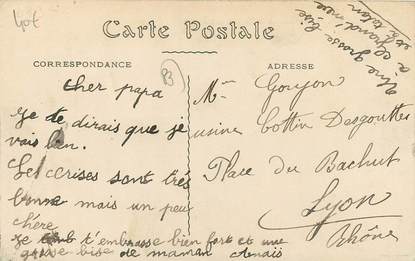 Carte Postale
CORRESPONDANCE
ADRESSE
cher papa
Je te dirais que je
vais bien.
Les cerises sont très
bonne mais un peu
chère
Je t'embrasse bien fort et une
grosse bise de maman
Mr Goujon
usine Cottin Desgouttes
Place du Bachut
Lyon
Rhône
Une grosse bise
a grand'mère